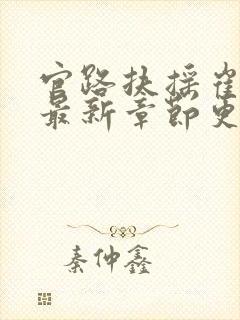 官路扶摇崔
最新章节更
秦仲鑫